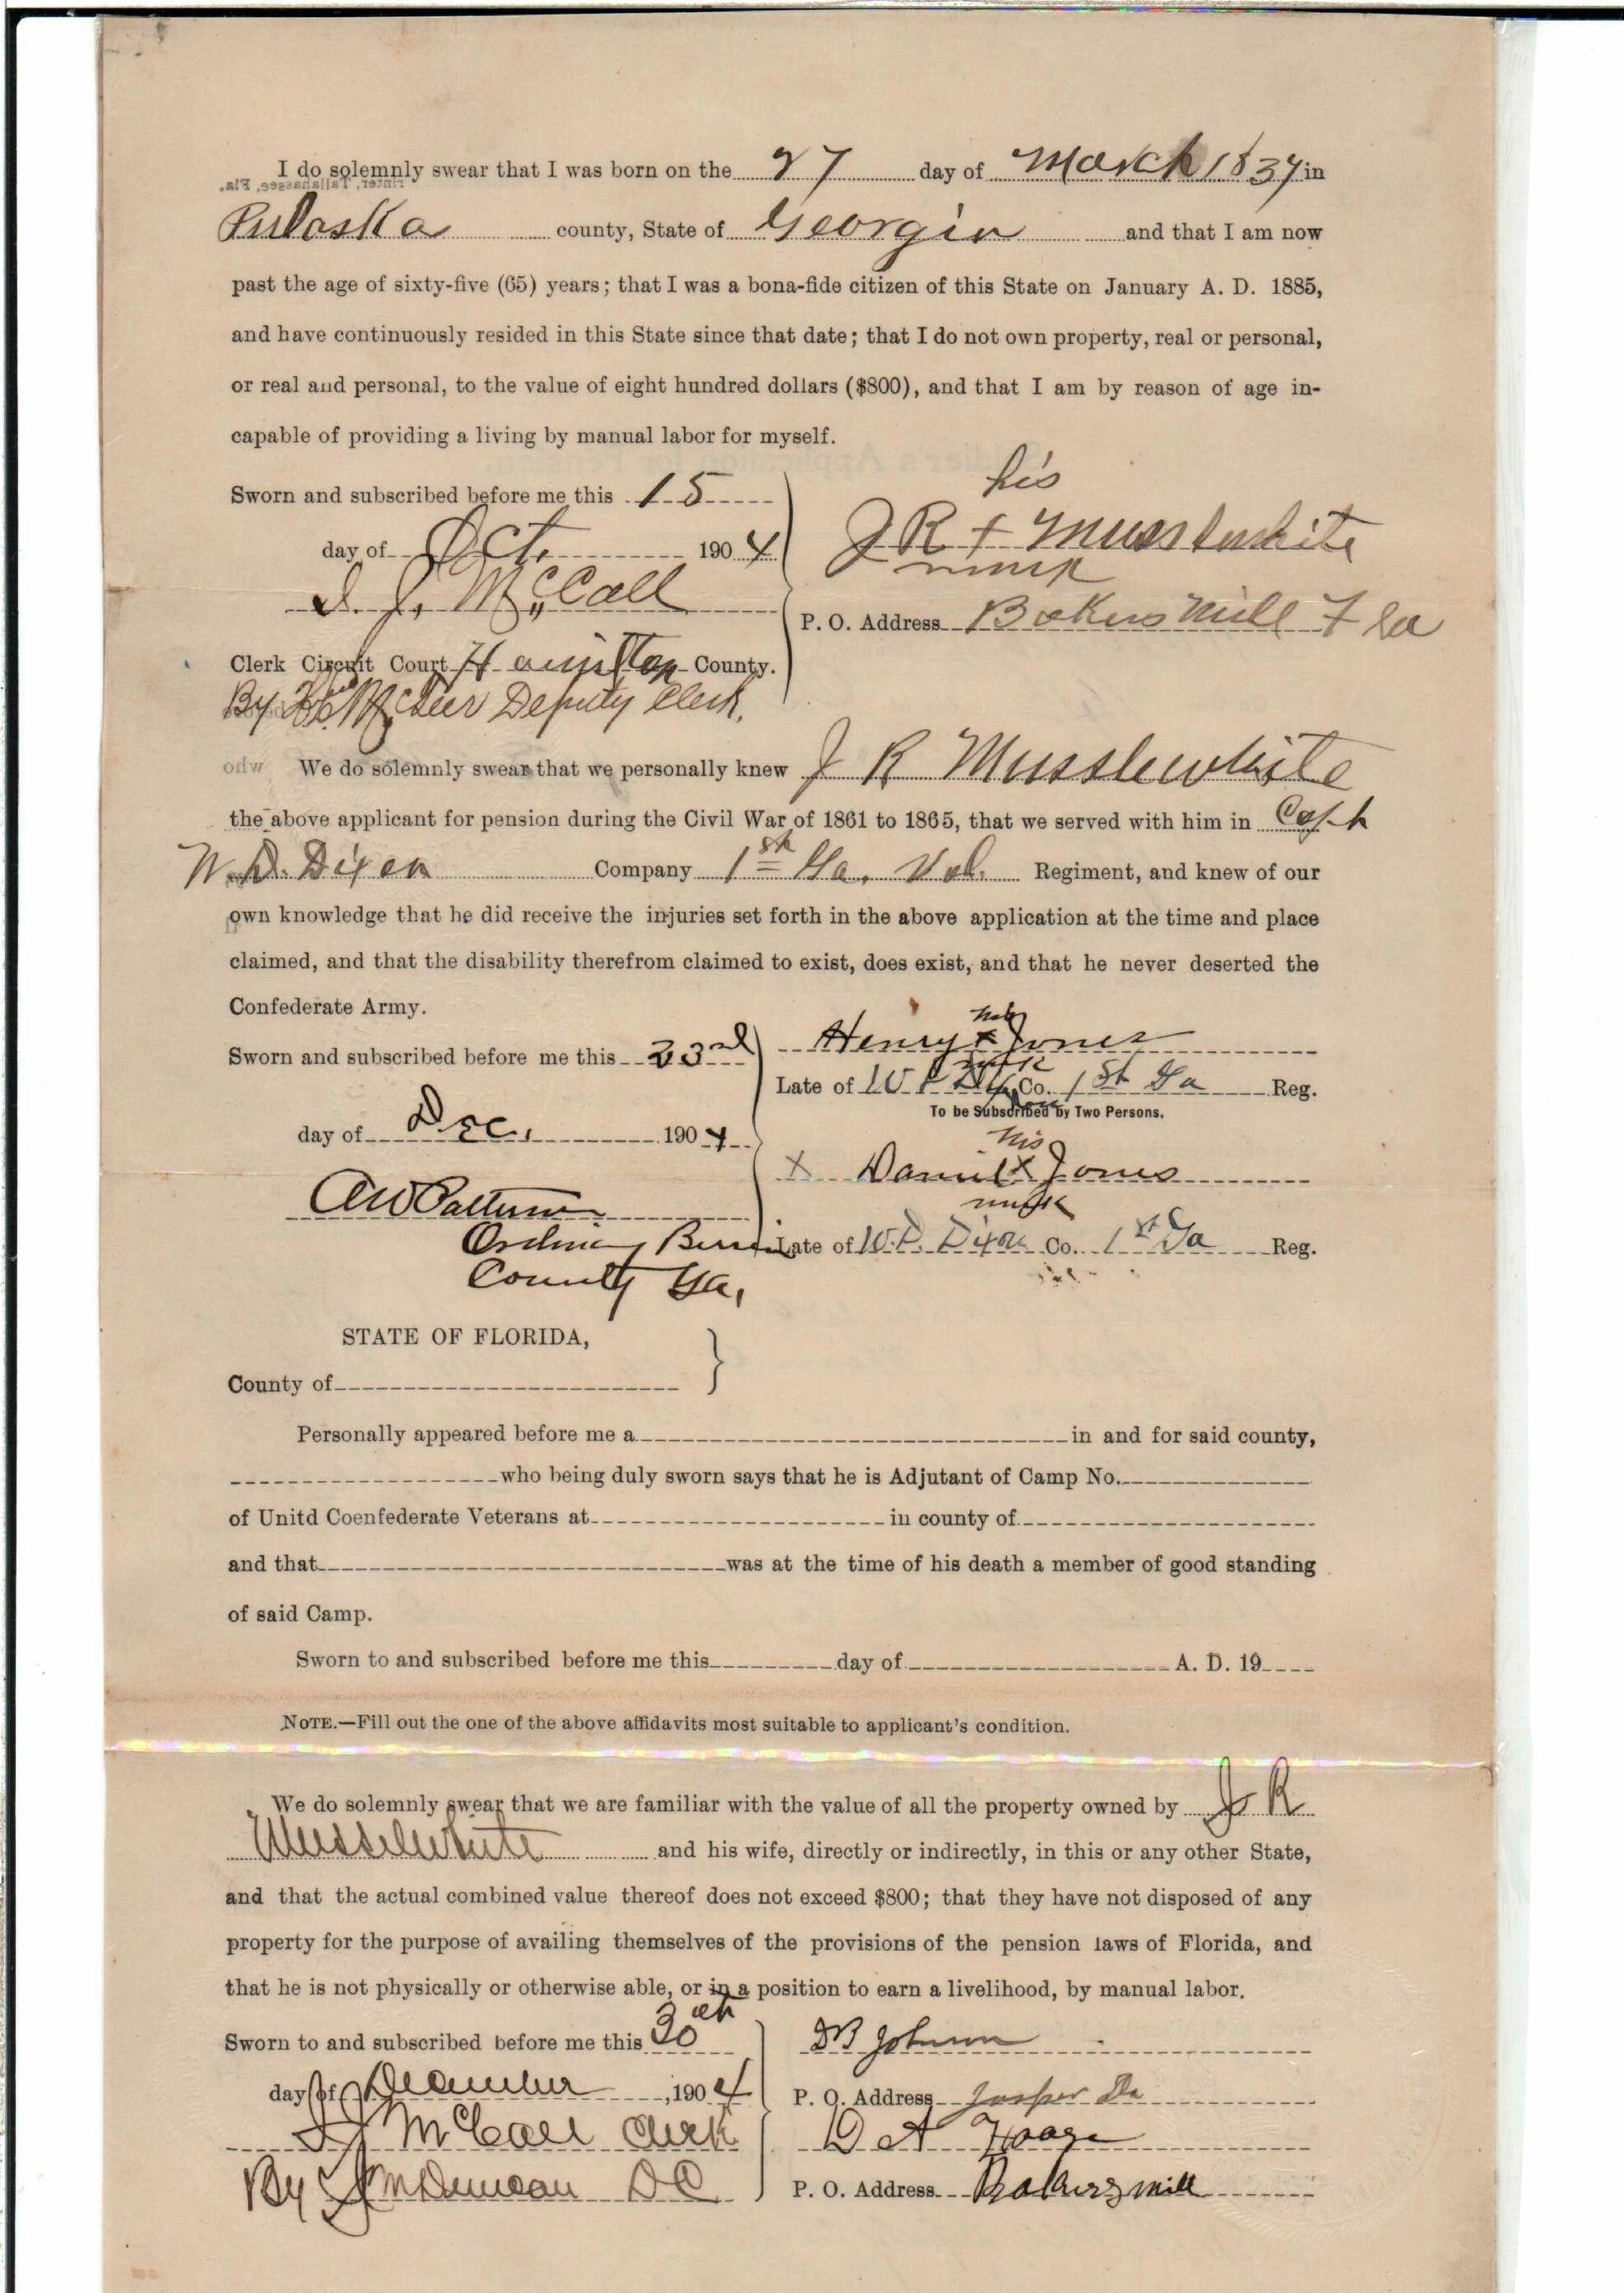 I do solemnly swear that I was born on the 27 day of March 1837 in
Pulaska county, State of Georgia and that I am now
past the age of sixty-five (65) years; that I was a bona-fide citizen of this State on January A. D. 1885,
and have continuously resided in this State since that date; that I do not own property, real or personal,
or real and personal, to the value of eight hundred dollars ($800), and that I am by reason of age in-
capable of providing a living by manual labor for myself.
Sworn and subscribed before me this 15
day of Oct. 1904
his
J R + Musslewhite
mark
McCall
P. O. Address Bakers Mill Fla
Clerk Circuit Court Hamilton County.
By Deputy Clerk.
who
We do solemnly swear that we personally knew J R Musslewhite
the above applicant for pension during the Civil War of 1861 to 1865, that we served with him in Capt
W. D. Dixon Company 1st Ga. Vol. Regiment, and knew of our
own knowledge that he did receive the injuries set forth in the above application at the time and place
claimed, and that the disability therefrom claimed to exist, does exist, and that he never deserted the
Confederate Army.
Sworn and subscribed before me this 23rd
day of Dec. 1904
his
Henry x Jones
mark
Late of Co. 1st Ga Reg.
To be Subscribed by Two Persons.
his
x Daniel x Jones
mark
AW Patterson
Ordinary Berrien
County Ga,
Late of W. D. Dixon Co. 1st Ga Reg.
STATE OF FLORIDA,
County of
Personally appeared before me a in and for said county,
who being duly sworn says that he is Adjutant of Camp No.
of Unitd Coenfederate Veterans at in county of
and that was at the time of his death a member of good standing
of said Camp.
Sworn to and subscribed before me this day of A. D. 19
NOTE.—Fill out the one of the above affidavits most suitable to applicant's condition.
We do solemnly swear that we are familiar with the value of all the property owned by J R
Musselwhite and his wife, directly or indirectly, in this or any other State,
and that the actual combined value thereof does not exceed $800; that they have not disposed of any
property for the purpose of availing themselves of the provisions of the pension laws of Florida, and
that he is not physically or otherwise able, or in a position to earn a livelihood, by manual labor.
Sworn to and subscribed before me this 30th
day of December, 1904
McCall Clerk
By Duncan DC
Johnson
P. O. Address Jasper Fla
D A
P. O. Address Bakers mill